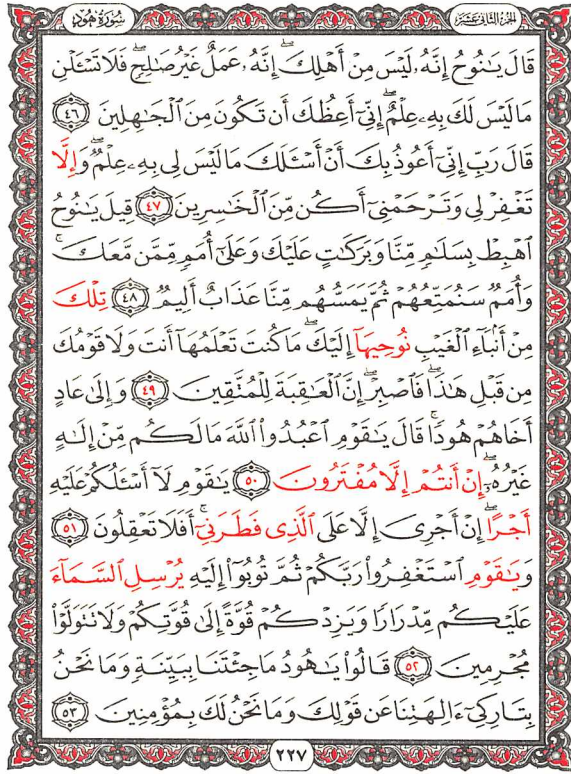 سُورَةُ هُودٍ
الجُزءُ الثَّانِي عَشَرَ
قَالَ يَٰنُوحُ إِنَّهُۥ لَيْسَ مِنْ أَهْلِكَ ۖ إِنَّهُۥ عَمَلٌ غَيْرُ صَٰلِحٍ ۖ فَلَا تَسْـَٔلْنِ
مَا لَيْسَ لَكَ بِهِۦ عِلْمٌ ۖ إِنِّىٓ أَعِظُكَ أَن تَكُونَ مِنَ ٱلْجَٰهِلِينَ ﴿٤٦﴾
قَالَ رَبِّ إِنِّىٓ أَعُوذُ بِكَ أَنْ أَسْـَٔلَكَ مَا لَيْسَ لِى بِهِۦ عِلْمٌ ۖ وَإِلَّا
تَغْفِرْ لِى وَتَرْحَمْنِىٓ أَكُن مِّنَ ٱلْخَٰسِرِينَ ﴿٤٧﴾ قِيلَ يَٰنُوحُ
ٱهْبِطْ بِسَلَٰمٍ مِّنَّا وَبَرَكَٰتٍ عَلَيْكَ وَعَلَىٰٓ أُمَمٍ مِّمَّن مَّعَكَ ۚ
وَأُمَمٌ سَنُمَتِّعُهُمْ ثُمَّ يَمَسُّهُم مِّنَّا عَذَابٌ أَلِيمٌ ﴿٤٨﴾ تِلْكَ
مِنْ أَنۢبَآءِ ٱلْغَيْبِ نُوحِيهَآ إِلَيْكَ ۖ مَا كُنتَ تَعْلَمُهَآ أَنتَ وَلَا قَوْمُكَ
مِن قَبْلِ هَٰذَا ۖ فَٱصْبِرْ ۖ إِنَّ ٱلْعَٰقِبَةَ لِلْمُتَّقِينَ ﴿٤٩﴾ وَإِلَىٰ عَادٍ
أَخَاهُمْ هُودًا ۚ قَالَ يَٰقَوْمِ ٱعْبُدُوا۟ ٱللَّهَ مَا لَكُم مِّنْ إِلَٰهٍ
غَيْرُهُۥٓ ۖ إِنْ أَنتُمْ إِلَّا مُفْتَرُونَ ﴿٥٠﴾ يَٰقَوْمِ لَآ أَسْـَٔلُكُمْ عَلَيْهِ
أَجْرًا ۖ إِنْ أَجْرِىَ إِلَّا عَلَى ٱلَّذِى فَطَرَنِىٓ ۚ أَفَلَا تَعْقِلُونَ ﴿٥١﴾
وَيَٰقَوْمِ ٱسْتَغْفِرُوا۟ رَبَّكُمْ ثُمَّ تُوبُوٓا۟ إِلَيْهِ يُرْسِلِ ٱلسَّمَآءَ
عَلَيْكُم مِّدْرَارًا وَيَزِدْكُمْ قُوَّةً إِلَىٰ قُوَّتِكُمْ وَلَا تَتَوَلَّوْا۟
مُجْرِمِينَ ﴿٥٢﴾ قَالُوا۟ يَٰهُودُ مَا جِئْتَنَا بِبَيِّنَةٍ وَمَا نَحْنُ
بِتَارِكِىٓ ءَالِهَتِنَا عَن قَوْلِكَ وَمَا نَحْنُ لَكَ بِمُؤْمِنِينَ ﴿٥٣﴾
٢٢٧